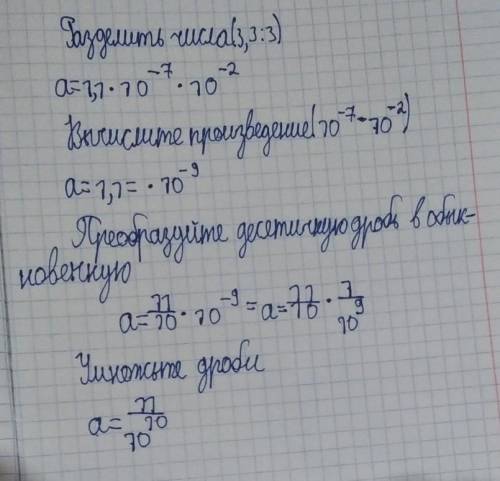 Разделить числа(3,3:3)
a=1,1·10⁻⁷·10⁻²
Вычислите произведение(10⁻⁷·10⁻²)
a=1,1=·10⁻⁹
Преобразуйте десетичную дробь в обык-
новенную
a=11/10·10⁻⁹=a=11/10·1/10⁹
Умножьте дроби
a=11/10¹⁰